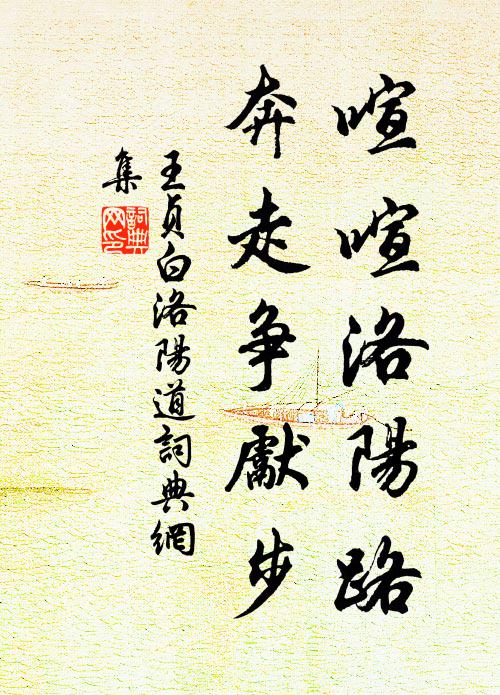 喧喧洛陽路
奔走争獻步
王貞白洛陽道詞典網
集
詞典
网印